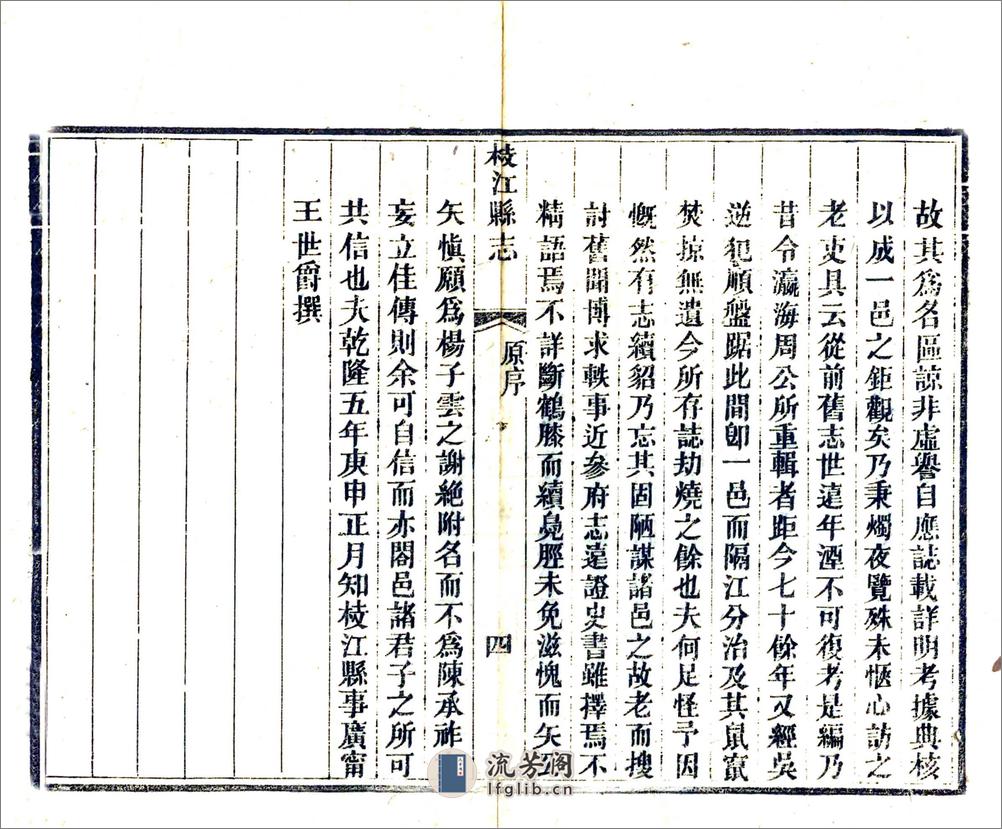 故其爲名區諒非虛譽自應誌載詳明考據典核
以成一邑之鉅觀矣乃秉燭夜覽殊未愜心訪之
老吏具云從前舊志世遠年湮不可復考是編乃
昔令瀛海周公所重輯者距今七十餘年又經吳
逆犯順盤踞此間卽一邑而隔江分治及其鼠竄
焚掠無遺今所存誌劫燒之餘也夫何足怪予因
慨然有志續貂乃忘其固陋謀諸邑之故老而搜
討舊聞博求軼事近參府志遠證史書雖擇焉不
精語焉不詳斷鶴膝而續鳧脛未免滋愧而矢公
枝江縣志
原序
四
矢愼願爲楊子雲之謝絶附名而不爲陳承祚
妄立佳傳則余可自信而亦閤邑諸君子之所可
共信也夫乾隆五年庚申正月知枝江縣事廣甯
王世爵撰
流芳阁
lfglib.cn